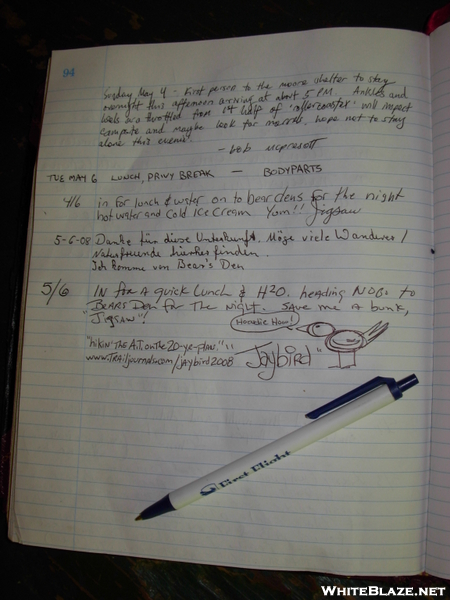 94
Sunday May 4 - First person to the moore shelter to stay
overnight this afternoon arriving at about 5 PM. Ankles and
heels are throttled from 1st half of 'rollercoaster' will inspect
campsite and maybe look for morels, hope not to stay
alone this evenin'.
- bob
TUE MAY 6 LUNCH, PRIVY BREAK — BODYPARTS
4/6 in for lunch & water on to bear dens for the night
hot water and Cold Ice Cream Yom!! Jigsaw
5-6-08 Danke für diese Unterkunft. Möge viele Wanderer /
Naturfreunde hierher finden.
Ich komme von Bear's Den
5/6 IN for a quick Lunch & H2O. heading NOBO to
BEARS DEN for The night. Save me a bunk,
"JIGSAW"!
Hoordie Hoo!
"hikin' THE A.T. on the 20-yr-plan."
www.TRailjournals.com/jaybird2008 "Jaybird"
First Flight
WHITEBLAZE.NET